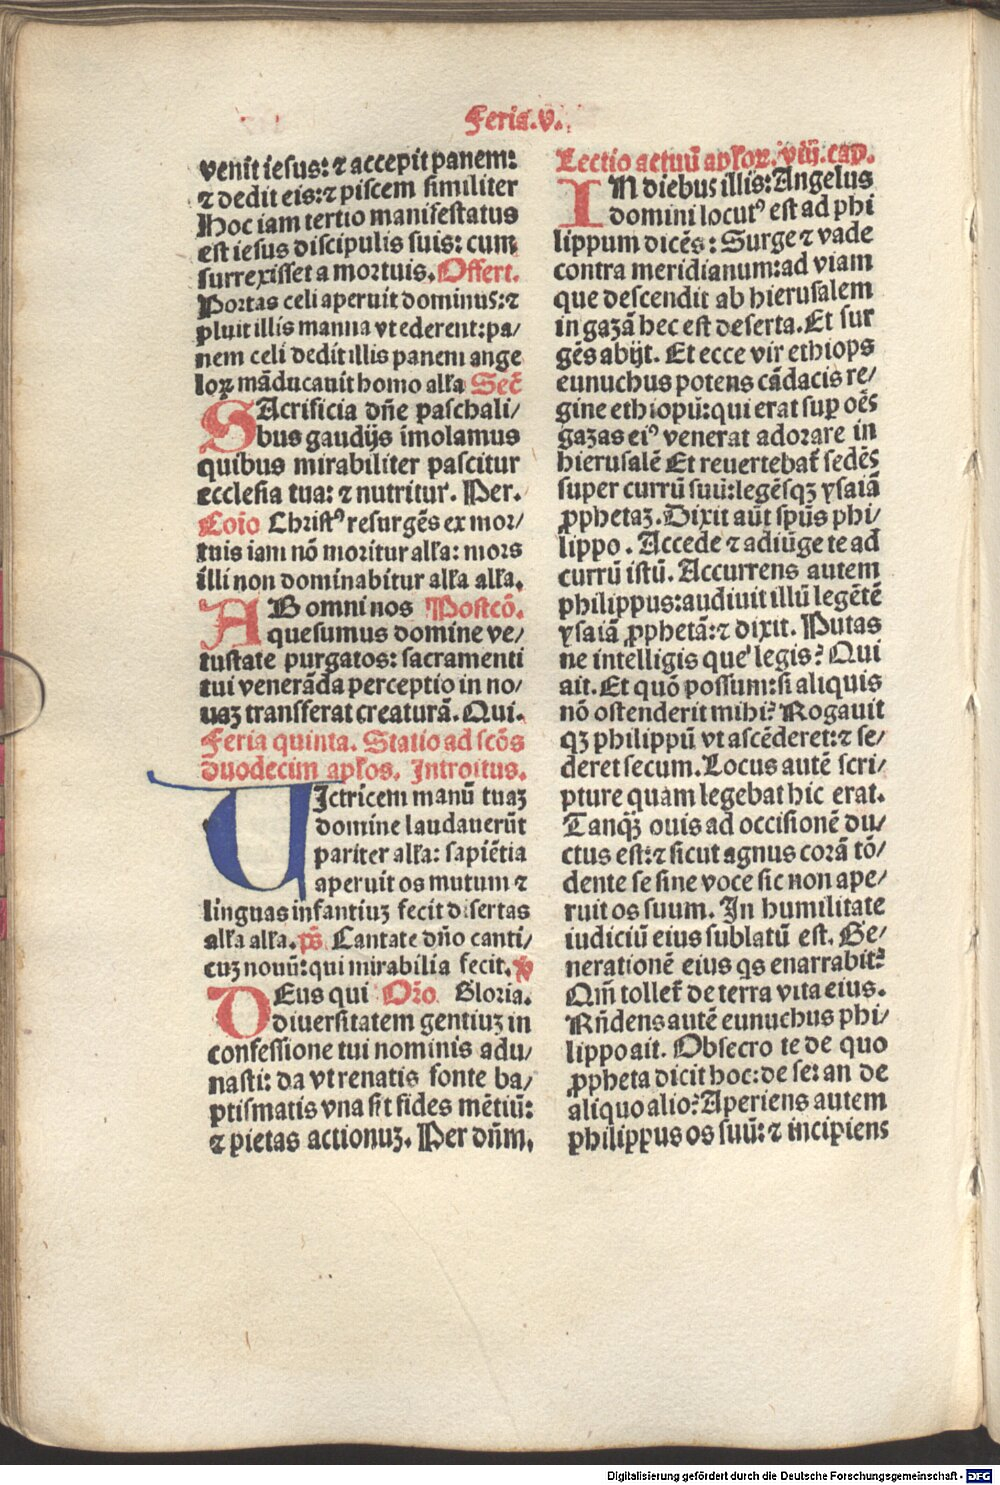 Feria.v.
venit iesus: ⁊ accepit panem:
⁊ dedit eis: ⁊ piscem similiter
Hoc iam tertio manifestatus
est iesus discipulis suis: cum
surrexisset a mortuis. Offert.
Portas celi aperuit dominus: ⁊
pluit illis manna vt ederent: pa/
nem celi dedit illis panem ange
loꝝ mãducauit homo alła Secꝛ̃
SAcrificia dñe paschali/
bus gaudijs imolamus
quibus mirabiliter pascitur
ecclesia tua: ⁊ nutritur. Per.
Coĩo Christꝰ resurgẽs ex mor/
tuis iam nõ moritur alła: mors
illi non dominabitur alła alła.
AB omni nos Postcõ.
quesumus domine ve/
tustate purgatos: sacramenti
tui venerãda perceptio in no/
uaꝫ transferat creaturã. Qui.
Feria quinta. Statio ad scõs
duodecim apłos. Introitus.
UIctricem manũ tuaꝫ
domine laudauerũt
pariter alła: sapiẽtia
aperuit os mutum ⁊
linguas infantiuꝫ fecit disertas
alła alła. p̃s Cantate dño canti/
cuꝫ nouũ: qui mirabilia fecit. ℣
DEus qui Oꝛ̃o Gloria.
diuersitatem gentiuꝫ in
confessione tui nominis adu/
nasti: da vt renatis fonte ba/
ptismatis vna sit fides mẽtiũ:
⁊ pietas actionuꝫ. Per dñm.
Lectio actuũ apłoꝝ. viij. cap.
IN diebus illis: Angelus
domini locutꝰ est ad phi
lippum dicẽs: Surge ⁊ vade
contra meridianum: ad viam
que descendit ab hierusalem
in gazã hec est deserta. Et sur
gẽs abijt. Et ecce vir ethiops
eunuchus potens cãdacis re/
gine ethiopũ: qui erat suꝑ oẽs
gazas eiꝰ venerat adorare in
hierusalẽ Et reuertebat̃ sedẽs
super currũ suũ: legẽsqꝫ ysaiã
ꝓphetaꝫ. Dixit aũt spũs phi/
lippo. Accede ⁊ adiũge te ad
currũ istũ. Accurrens autem
philippus: audiuit illũ legẽtẽ
ysaiã ꝓphetã: ⁊ dixit. Putas
ne intelligis que legis? Qui
ait. Et quõ possum: si aliquis
nõ ostenderit mihi? Rogauit
qꝫ philippũ vt ascẽderet: ⁊ se/
deret secum. Locus autẽ scri/
pture quam legebat hic erat.
Tanqꝫ̃ ouis ad occisionẽ du/
ctus est: ⁊ sicut agnus corã tõ/
dente se sine voce sic non ape/
ruit os suum. In humilitate
iudiciũ eius sublatũ est. Ge/
nerationẽ eius qs enarrabit?
Qm̃ tollet̃ de terra vita eius.
Rñdens autẽ eunuchus phi/
lippo ait. Obsecro te de quo
ꝓpheta dicit hoc: de se: an de
aliquo alio? Aperiens autem
philippus os suũ: ⁊ incipiens
Digitalisierung gefördert durch die Deutsche Forschungsgemeinschaft - DFG